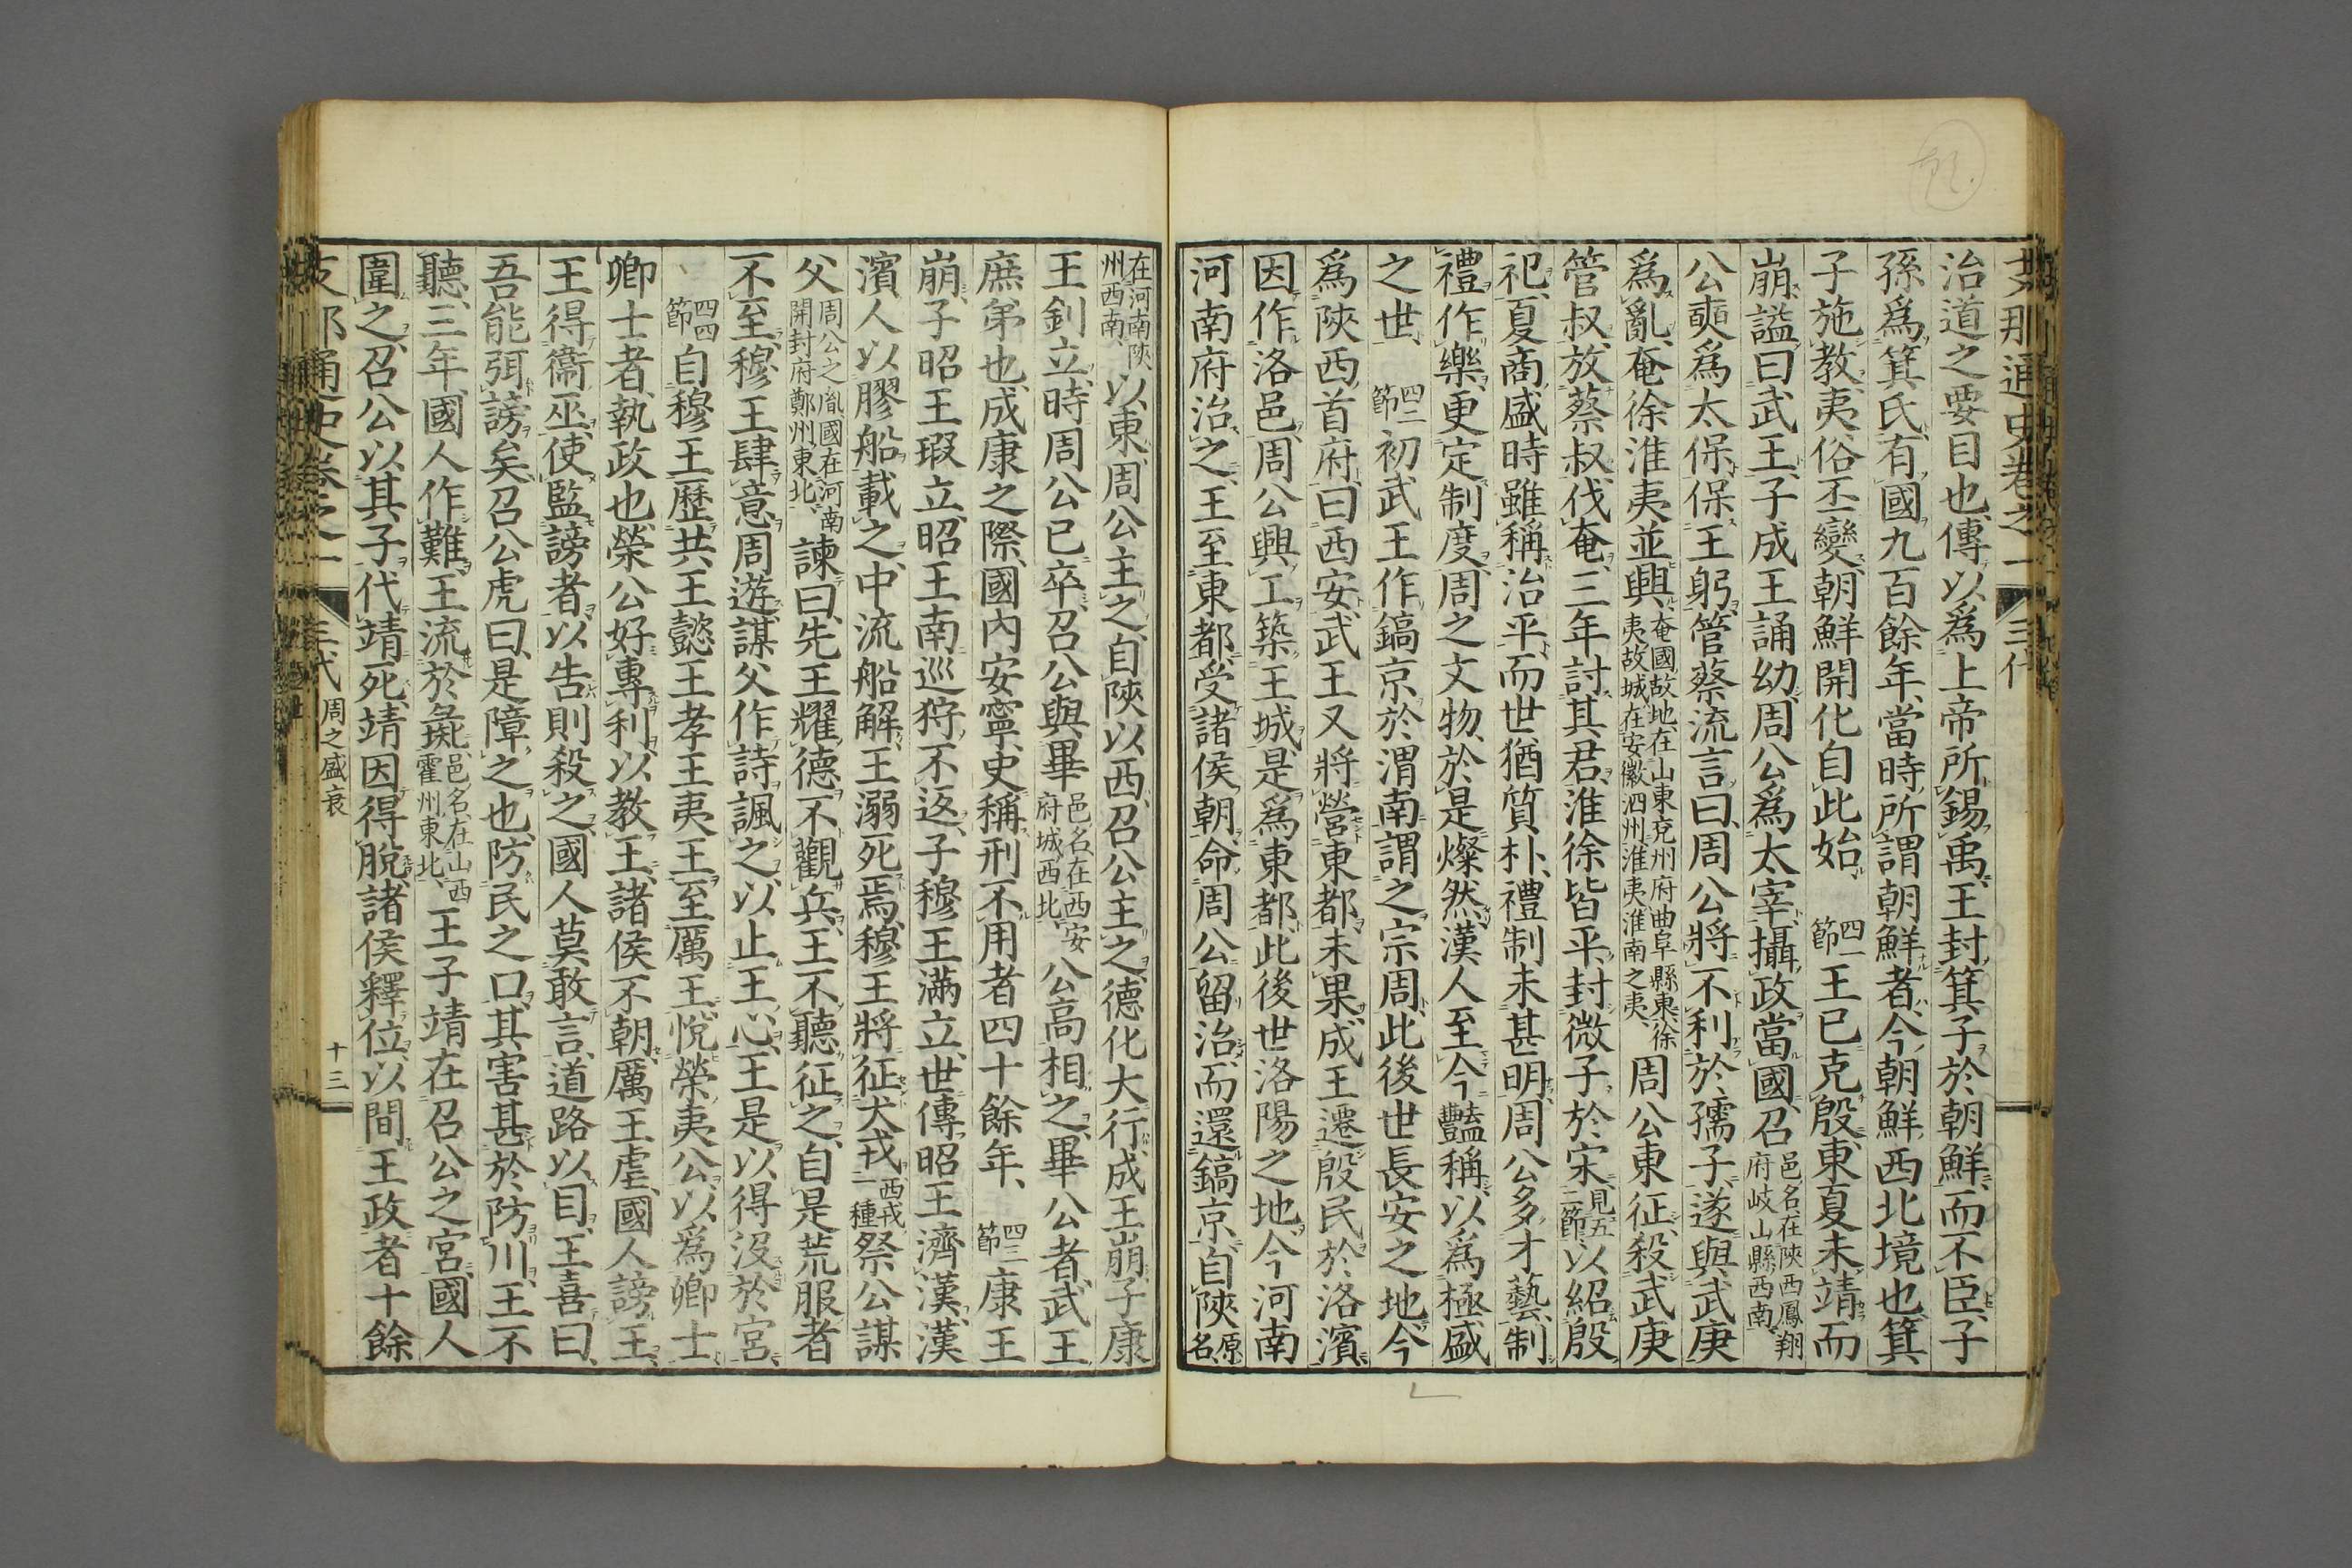 支那通史卷之一 三代
治道之要目也、傳以爲上帝所錫禹、王封箕子於朝鮮、而不臣、子
孫爲箕氏、有國九百餘年、當時所謂朝鮮者、今朝鮮西北境也、箕
子施教、夷俗丕變、朝鮮開化自此始、 四一節 王已克殷、東夏未靖而
崩、諡曰武王、子成王誦幼、周公爲太宰、攝政當國、召邑名在陝西鳳翔府岐山縣西南、
公奭爲太保、保王躬、管蔡流言曰、周公將不利於孺子、遂與武庚
爲亂、奄徐淮夷並興、奄國故地、在山東兗州府曲阜縣東、徐夷故城、在安徽泗州、淮夷、淮南之夷、周公東征、殺武庚
管叔、放蔡叔、伐奄、三年討其君、淮徐皆平、封微子於宋、見五二節、以紹殷
祀、夏商盛時、雖稱治平、而世猶質朴、禮制未甚明、周公多才藝、制
禮作樂、更定制度、周之文物、於是燦然、漢人至今豔稱、以爲極盛
之世、 四二節 初武王作鎬京於渭南、謂之宗周、此後世長安之地、今
爲陝西首府、曰西安、武王又將營東都、未果、成王遷殷民於洛濱、
因作洛邑、周公興工築王城、是爲東都、此後世洛陽之地、今河南
河南府治之、王至東都、受諸侯朝、命周公留治、而還鎬京、自陝原名、
在河南陝州西南、以東、周公主之、自陝以西、召公主之、德化大行、成王崩、子康
王釗立、時周公已卒、召公與畢邑名在西安府城西北、公高相之、畢公者、武王
庶弟也、成康之際、國內安寧、史稱刑不用者四十餘年、 四三節 康王
崩、子昭王瑕立、昭王南巡狩不返、子穆王滿立、世傳昭王濟漢、漢
濱人以膠船載之、中流船解、王溺死焉、穆王將征犬戎、西戎一種祭公謀
父周公之胤、國在河南開封府鄭州東北、諫曰、先王耀德不觀兵、王不聽、征之、自是荒服者
不至、穆王肆意周遊、謀父作詩諷之、以止王心、王是以得沒於宮、
四四節 自穆王歷共王懿王孝王夷王、至厲王、悅榮夷公、以爲卿士、
卿士者、執政也、榮公好專利、以教王、諸侯不朝、厲王虐、國人謗王、
王得衞巫、使監謗者、以告則殺之、國人莫敢言、道路以目、王喜曰、
吾能弭謗矣、召公虎曰、是障之也、防民之口、其害甚於防川、王不
聽、三年、國人作難、王流於彘、邑名、在山西霍州東北、王子靖在召公之宮、國人
圍之、召公以其子代靖死、靖因得脫、諸侯釋位、以間王政者十餘
支那通史卷之一 三代 周之盛衰 十三